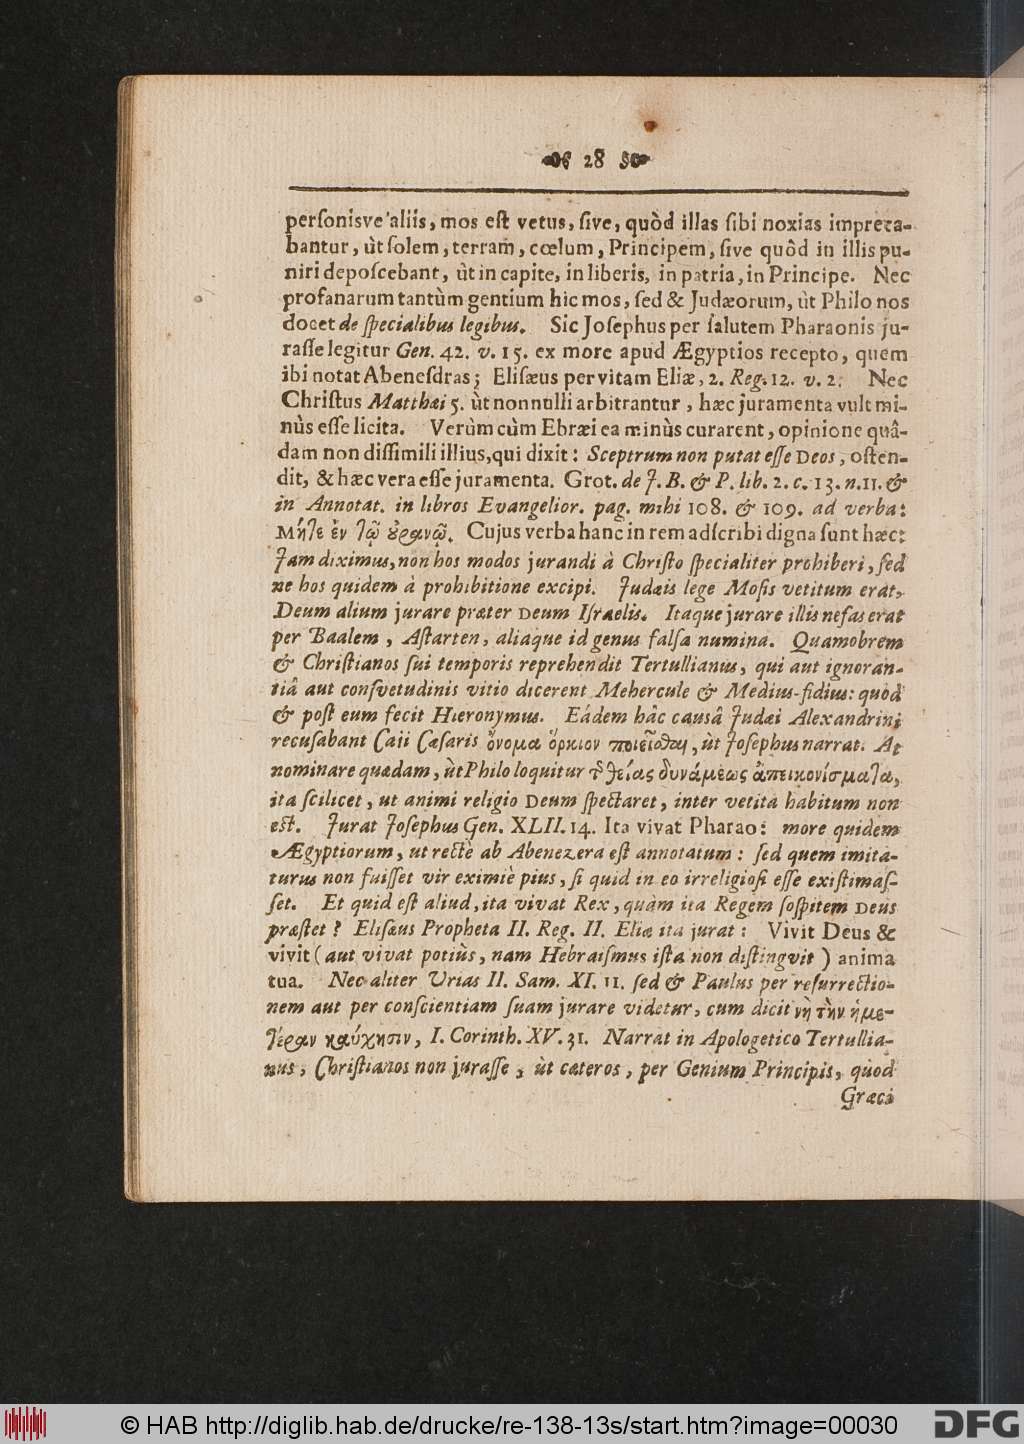 28
personisve aliis, mos est vetus, sive, quòd illas sibi noxias impreca-
bantur, ùt solem, terram, cœlum, Principem, sive quôd in illis pu-
niri deposcebant, ùt in capite, in liberis, in patria, in Principe. Nec
profanarum tantùm gentium hic mos, sed & Judæorum, ùt Philo nos
docet de specialibus legibus. Sic Josephus per salutem Pharaonis ju-
rasse legitur Gen. 42. v. 15. ex more apud Ægyptios recepto, quem
ibi notat Abenesdras; Elisæus per vitam Eliæ, 2. Reg. 12. v. 2. Nec
Christus Matthæi 5. ùt nonnulli arbitrantur, hæc juramenta vult mi-
nùs esse licita. Verùm cùm Ebræi ea minùs curarent, opinione quâ-
dam non dissimili illius, qui dixit: Sceptrum non putat esse Deos, osten-
dit, & hæc vera esse juramenta. Grot. de J. B. & P. lib. 2. c. 13. n. 11. &
in Annotat. in libros Evangelior. pag. mihi 108. & 109. ad verba:
Μήτε ἐν τῷ ὐρανῷ. Cujus verba hanc in rem adscribi digna sunt hæc:
Jam diximus, non hos modos jurandi à Christo specialiter prohiberi, sed
ne hos quidem à prohibitione excipi. Judæis lege Mosis vetitum erat,
Deum alium jurare præter Deum Israelis. Itaque jurare illis nefas erat
per Baalem, Astarten, aliaque id genus falsa numina. Quamobrem
& Christianos sui temporis reprehendit Tertullianus, qui aut ignoran-
tiâ aut consvetudinis vitio dicerent Mehercule & Medius-fidius: quod
& post eum fecit Hieronymus. Eádem hâc causâ Judæi Alexandrini
recusabant Caii Cæsaris ὄνομα ὅρκιον ποιεῖσθαι, ùt Josephus narrat. At
nominare quædam, ùt Philo loquitur τ͂ θείας δυνάμεως ἀπεικονίσματα,
ita scilicet, ut animi religio Deum spectaret, inter vetita habitum non
est. Jurat Josephus Gen. XLII. 14. Ita vivat Pharao: more quidem
Ægyptiorum, ut rectè ab Abenezera est annotatum: sed quem imita-
turus non fuisset vir eximiè pius, si quid in eo irreligiosi esse existimas-
set. Et quid est aliud, ita vivat Rex, quàm ita Regem sospitem Deus
præstet? Elisæus Propheta II. Reg. II. Eliæ ita jurat: Vivit Deus &
vivit (aut vivat potiùs, nam Hebraismus ista non distingvit) anima
tua. Nec aliter Urias II. Sam. XI. 11. sed & Paulus per resurrectio-
nem aut per conscientiam suam jurare videtur, cum dicit νὴ τὴν ἡμε-
τέραν καύχησιν, I. Corinth. XV. 31. Narrat in Apologetico Tertullia-
nus, Christianos non jurasse, ùt cæteros, per Genium Principis, quod
Græci
© HAB http://diglib.hab.de/drucke/re-138-13s/start.htm?image=00030
DFG